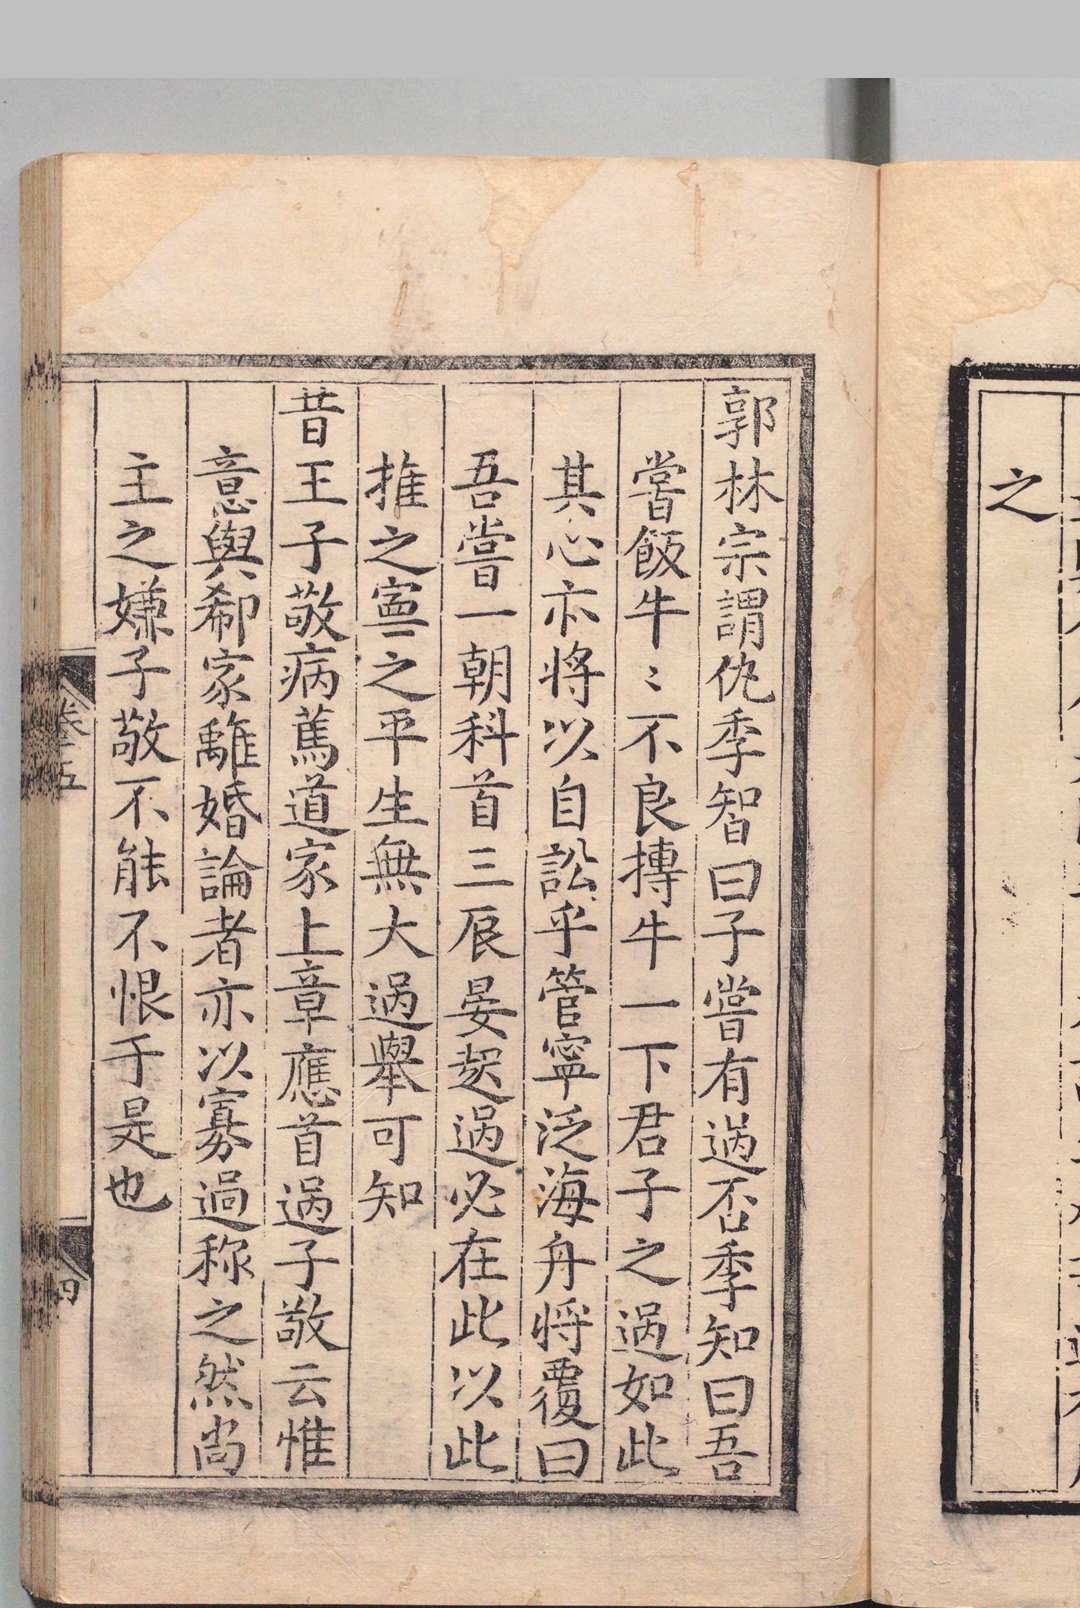 之
郭林宗謂仇季智曰子嘗有過否季知曰吾
嘗飯牛〻不良摶牛一下君子之過如此
其心亦將以自訟乎管寧泛海舟將覆曰
吾嘗一朝科首三辰晏起過必在此以此
推之寧之平生無大過舉可知
昔王子敬病篤道家上章應首過子敬云惟
意與郗家離婚論者亦以寡過称之然尚
主之嫌子敬不能不恨于是也
卷五
四